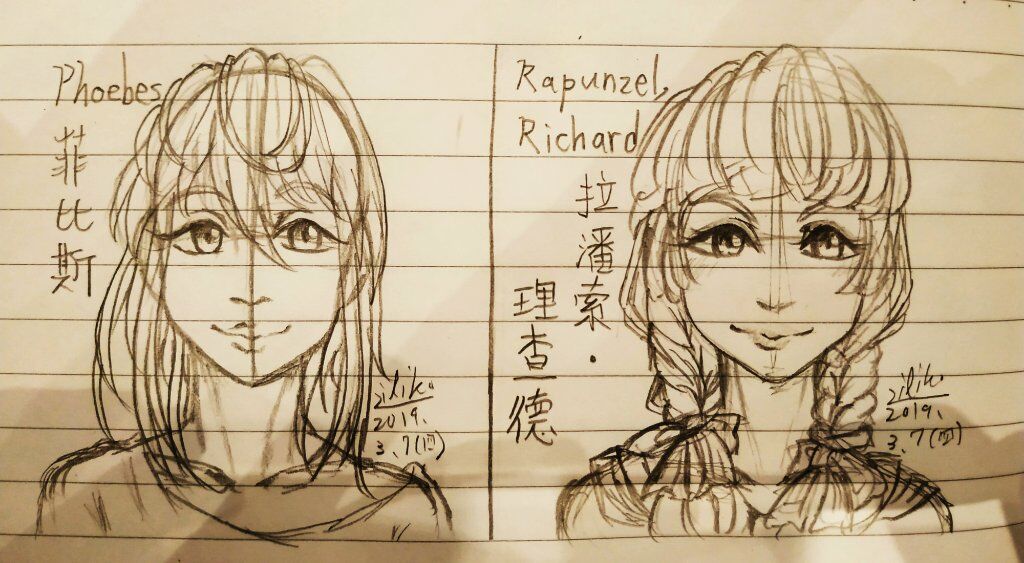 Phoebes
菲比斯
zilik.
2019.
3.7(四)
Rapunzel,
Richard
拉潘索·
理查德
zilik.
2019.
3.7(四)